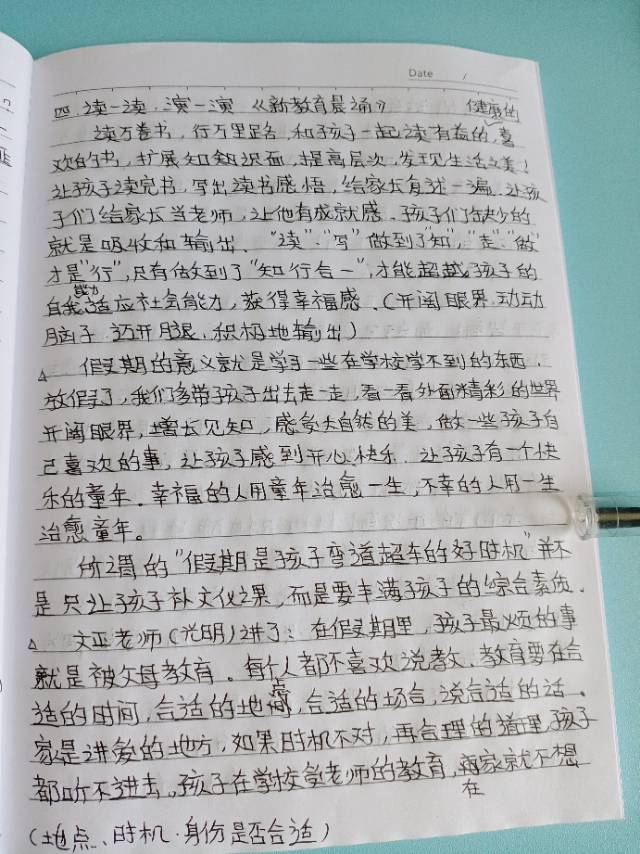 Date /
四.读一读,演一演《新教育晨诵》 健康的
读万卷书,行万里路,和孩子一起读有益的,喜
欢的书,扩展知知识面,提高层次,发现生活之美!
让孩子读完书,写出读书感悟,给家长有述一遍.让孩
子们给家长当老师,让他有成就感.孩子们缺少的
就是吸收和输出、"读"."写"做到了"知","走"."做"
才是"行",只有做到了"知行合一",才能超越孩子的
自我适应社会能力,获得幸福感.(开阔眼界.动动
能力
脑子.迈开腿.积极地输出)
△ 假期的意义就是学习一些在学校学不到的东西.
放假了,我们多带孩子出去走一走,看一看外面精彩的世界
开阔眼界,增长见知,感受大自然的美,做一些孩子自
己喜欢的事,让孩子感到开心.快乐.让孩子有一个快
乐的童年.幸福的人用童年治愈一生,不幸的人用一生
治愈童年。
所谓的"假期是孩子弯道超车的好时机"并不
是只让孩子补文化课,而是要丰满孩子的综合素质.
△ 文亚老师(光明)讲了:在假期里,孩子最烦的事
就是被父母教育。每个人都不喜欢说教.教育要在合
适的时间,合适的地点,合适的场合,说合适的话。
家是讲爱的地方,如果时机不对,再合理的道理,孩子
都听不进去。孩子在学校受老师的教育,在家就不想
(地点、时机.身份是否合适)